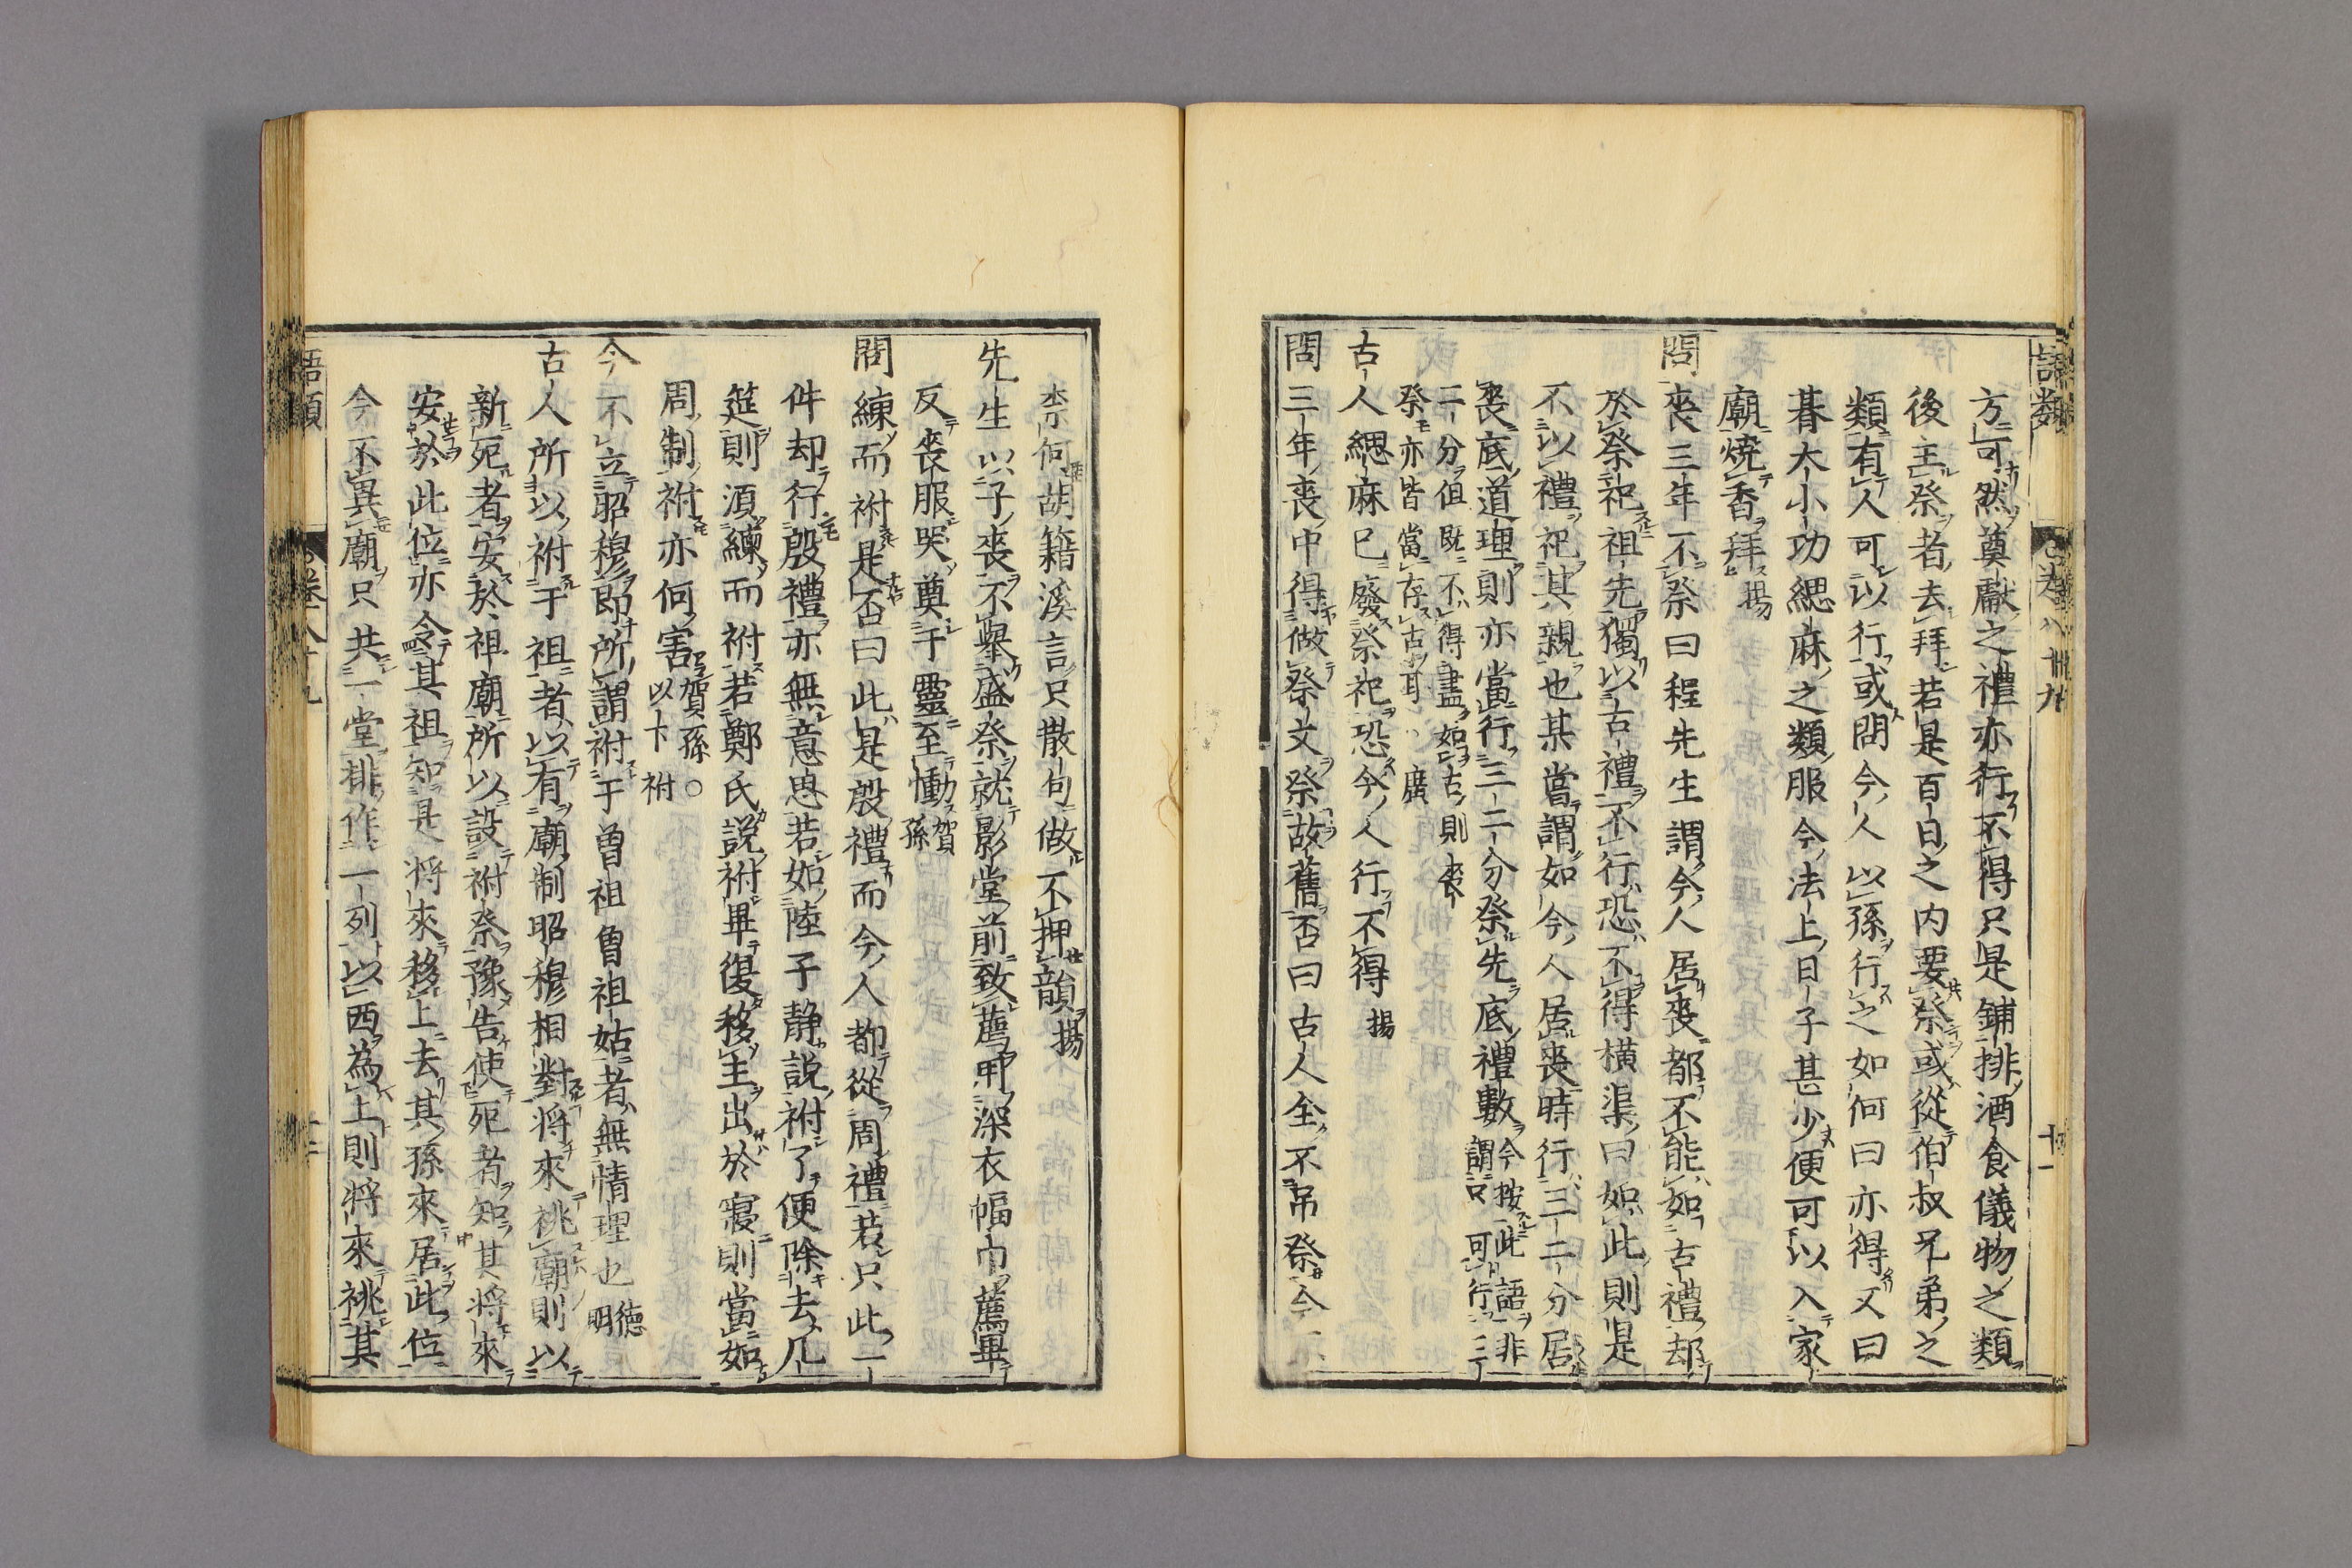 語類 卷八十九 十一
方可然奠獻之禮亦行不得只是鋪排酒食儀物之類
後主祭者去拜若是百日之內要祭或從伯叔兄弟之
類有人可以行或問今人以孫行之如何曰亦得又曰
朞大小功緦麻之類服今法上日子甚少便可以入家
廟燒香拜揚
問喪三年不祭曰程先生謂今人居喪都不能如古禮却
於祭祀祖先獨以古禮不行恐不得橫渠曰如此則是
不以禮祀其親也某嘗謂如今人居喪時行三二分居
喪底道理則亦當行三二分祭先底禮數今按此語非謂只可行三
二分但既不得盡如古則喪祭亦皆當存古耳廣
古人緦麻已廢祭祀恐今人行不得揚
問三年喪中得做祭文祭故舊否曰古人全不吊祭今不
柰何胡籍溪言只散句做不押韻揚
先生以子喪不舉盛祭就影堂前致薦用深衣幅巾薦畢
反喪服哭奠于靈至慟賀孫
問練而祔是否曰此是殷禮而今人都從周禮若只此一
件却行殷禮亦無意思若如陸子静說祔了便除去几
筵則須練而祔若鄭氏說祔畢復移主出於寢則當如
周制祔亦何害賀孫○以下祔
今不立昭穆即所謂祔于曾祖曾祖姑者無情理也德明
古人所以祔于祖者以有廟制昭穆相對將來祧廟則以
新死者安於祖廟所以設祔祭豫告使死者知其將來
安於此位亦令其祖知是將來移上去其孫來居此位
今不異廟只共一堂排作一列以西為上則將來祧其
語類 卷八十九 十二